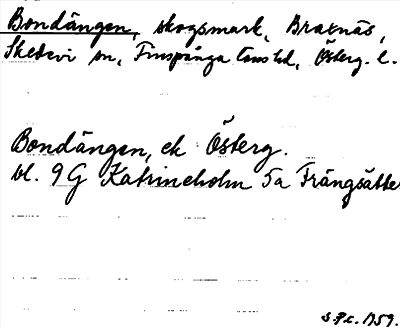 Bondängen, skogsmark, Braxnäs,
Skedevi sn, Finspånga läns hd, Österg. l.
Bondängen, ek Österg.
bl. 9 G Katrineholm 5a Frängsätter
S.P.L. 1959.